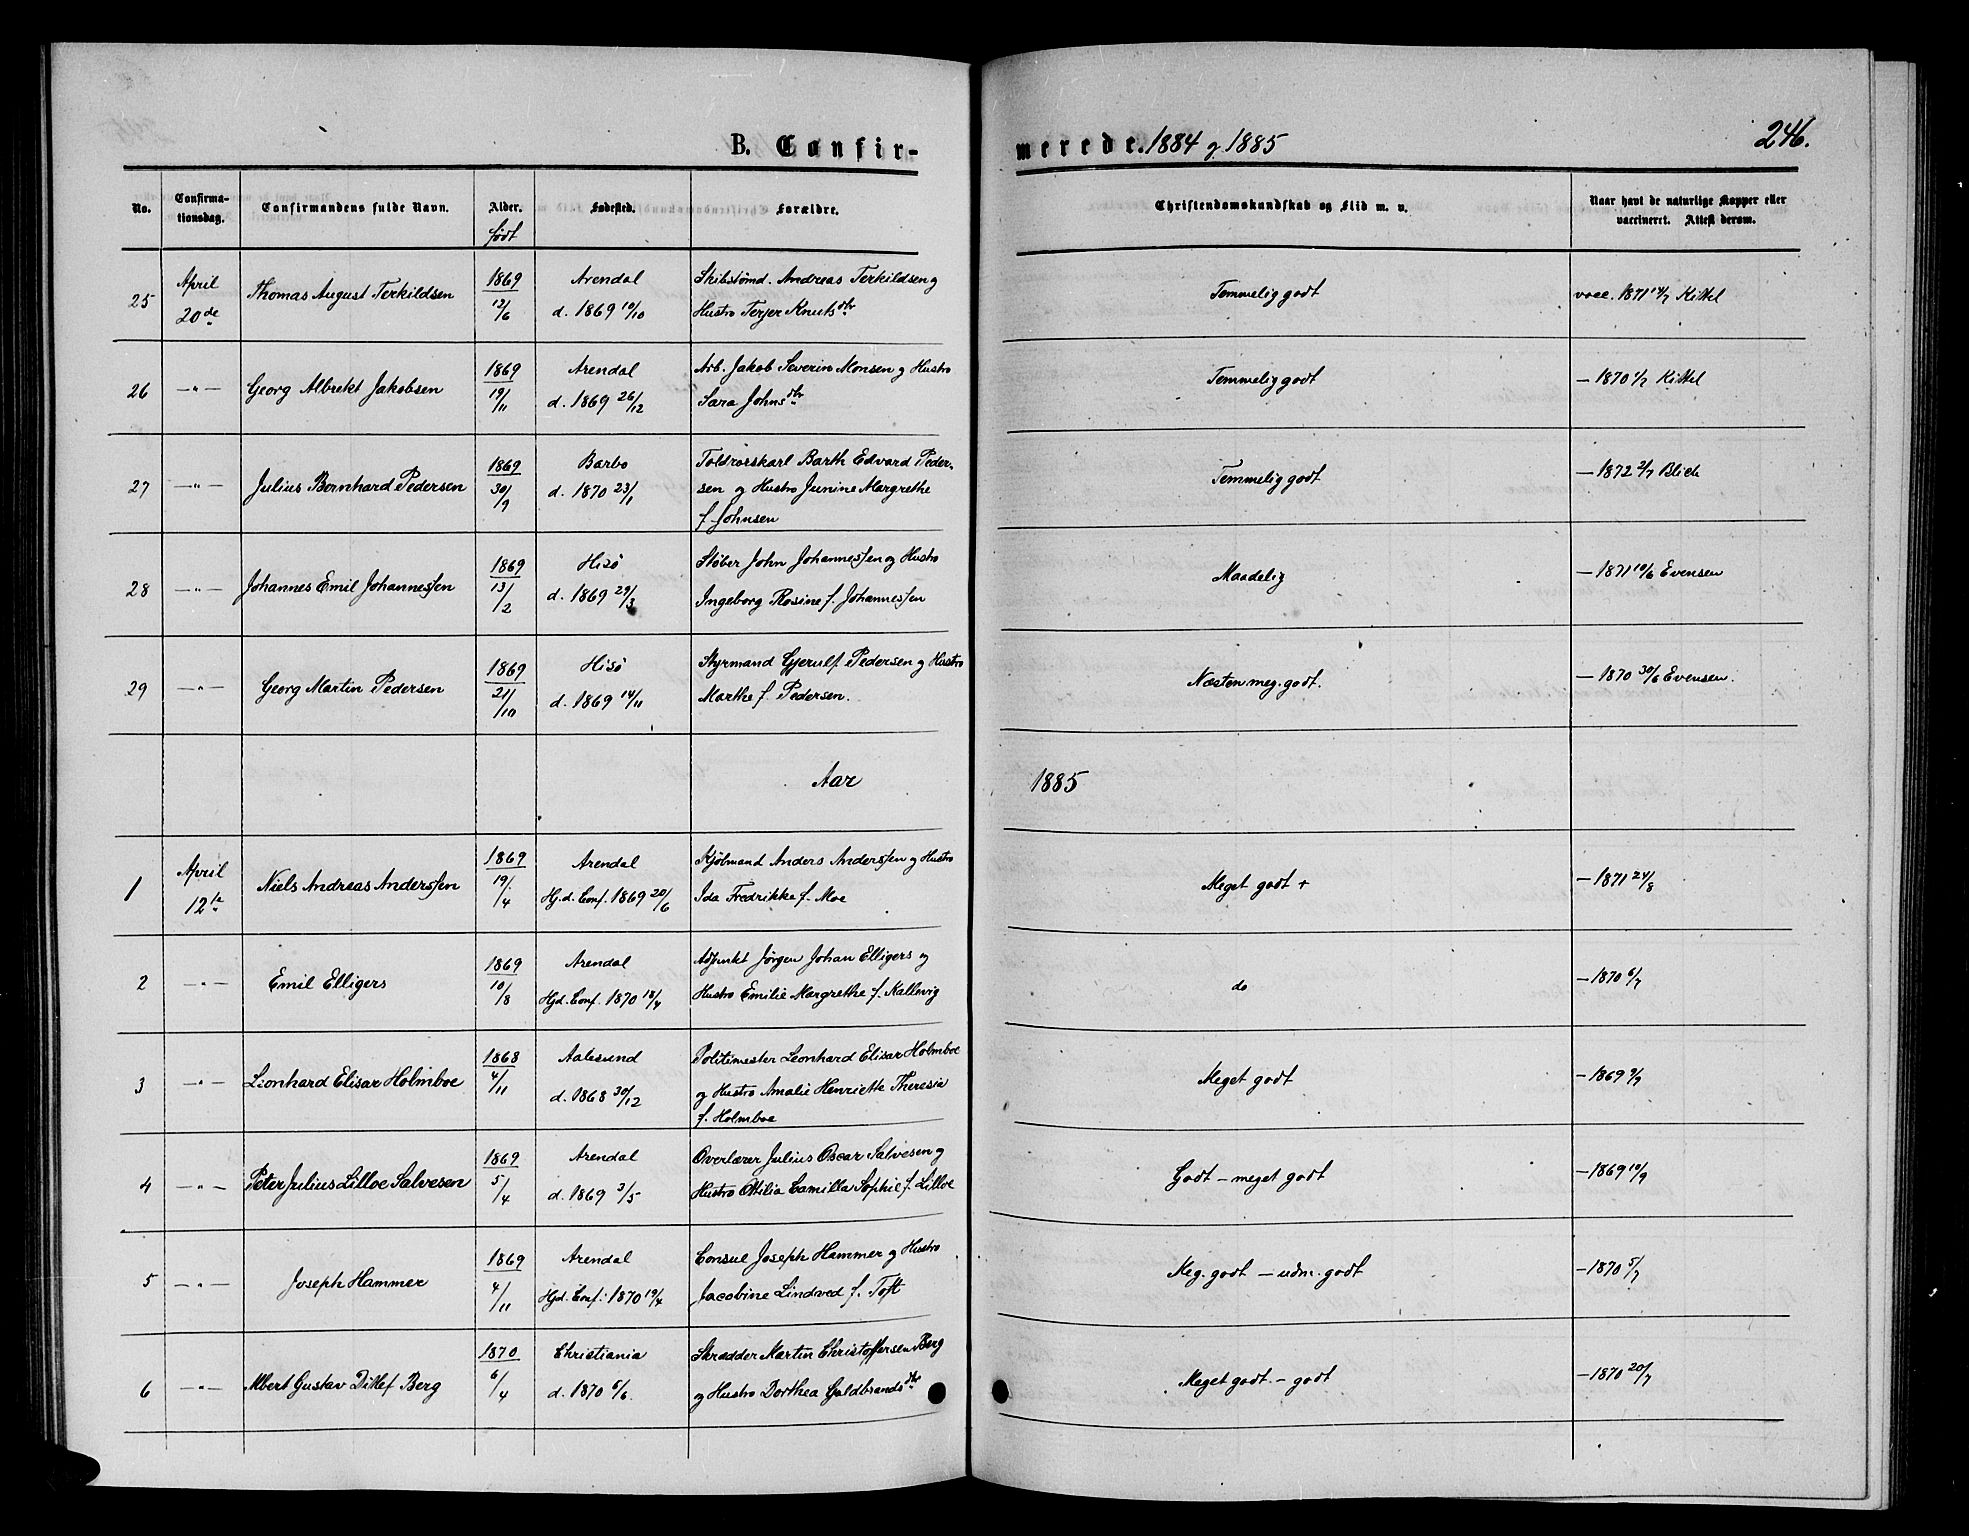 B. Confir-
merede. 1884 og 1885
246.
No.
Confirma-
tionsdag.
Confirmandens fulde Navn.
Alder.
født
Fødested.
Forældre.
Christendomskundskab og Flid m. v.
Naar havt de naturlige Kopper eller
vaccineret. Attest derom.
25
April
20de
Thomas August Terkildsen
1869
12/6
Arendal
d. 1869 10/10
Skibstømd. Andreas Terkildsen og
Hustro Terjer Knutsdtr
Temmelig godt
vacc. 1871 12/7 Kittel
26
—"—
Georg Albrekt Jakobsen
1869
19/11
Arendal
d. 1869 26/12
Arb. Jakob Severin Monsen og Hustro
Sara Johnsdtr
Temmelig godt
— 1870 1/7 Kittel
27
—"—
Julius Bernhard Pedersen
1869
30/9
Barbo
d. 1870 23/1
Toldrorskarl Barth Edvard Peder-
sen og Hustro Junine Margrethe
f. Johnsen
Temmelig godt
— 1872 2/7 Blich
28
—"—
Johannes Emil Johannessen
1869
13/2
Hisø
d. 1869 29/3
Støber John Johannessen og Hustro
Ingeborg Rosine f. Johannessen
Maadelig
— 1871 10/6 Evensen
29
—"—
Georg Martin Pedersen
1869
21/10
Hisø
d. 1869 14/11
Styrmand Gjerulf Pedersen og Hustro
Marthe f. Pedersen.
Næsten meg. godt.
— 1870 30/6 Evensen.
Aar
1885
1
April
12te
Niels Andreas Anderssen
1869
19/4
Arendal
Hj.d. Conf. 1869 20/6
Kjøbmand Anders Anderssen og Hustro
Ida Fredrikke f. Moe
Meget godt +
— 1871 24/8
2
—"—
Emil Elligers
1869
10/8
Arendal
Hjd. Conf. 1870 18/4
Adjunkt Jørgen Johan Elligers og
Hustro Emilie Margrethe f. Kallevig
do
— 1870 6/7
3
—"—
Leonhard Elisar Holmboe
1868
4/11
Aalesund
d. 1868 30/12
Politimester Leonhard Elisar Holmboe
og Hustro Amalie Henriette Theresia
f. Holmboe
Meget godt
— 1869 9/9
4
—"—
Peter Julius Lilloe Salvesen
1869
5/4
Arendal
d. 1869 3/5
Overlærer Julius Oscar Salvesen og
Hustro Ottilia Camilla Sophie f. Lilloe
Godt — meget godt
— 1869 10/9
5
—"—
Joseph Hammer
1869
4/11
Arendal
Hjd. Conf. 1870 19/4
Consul Joseph Hammer og Hustro
Jacobine Lindved f. Toft
Meg. godt — udm. godt
— 1870 5/7
6
—"—
Albert Gustav Ditlef Berg
1870
6/4
Christiania
d. 1870 6/6.
Skrædder Martin Christoffersen Berg
og Hustro Dorthea Guldbrandsdtr
Meget godt — godt
— 1870 20/7